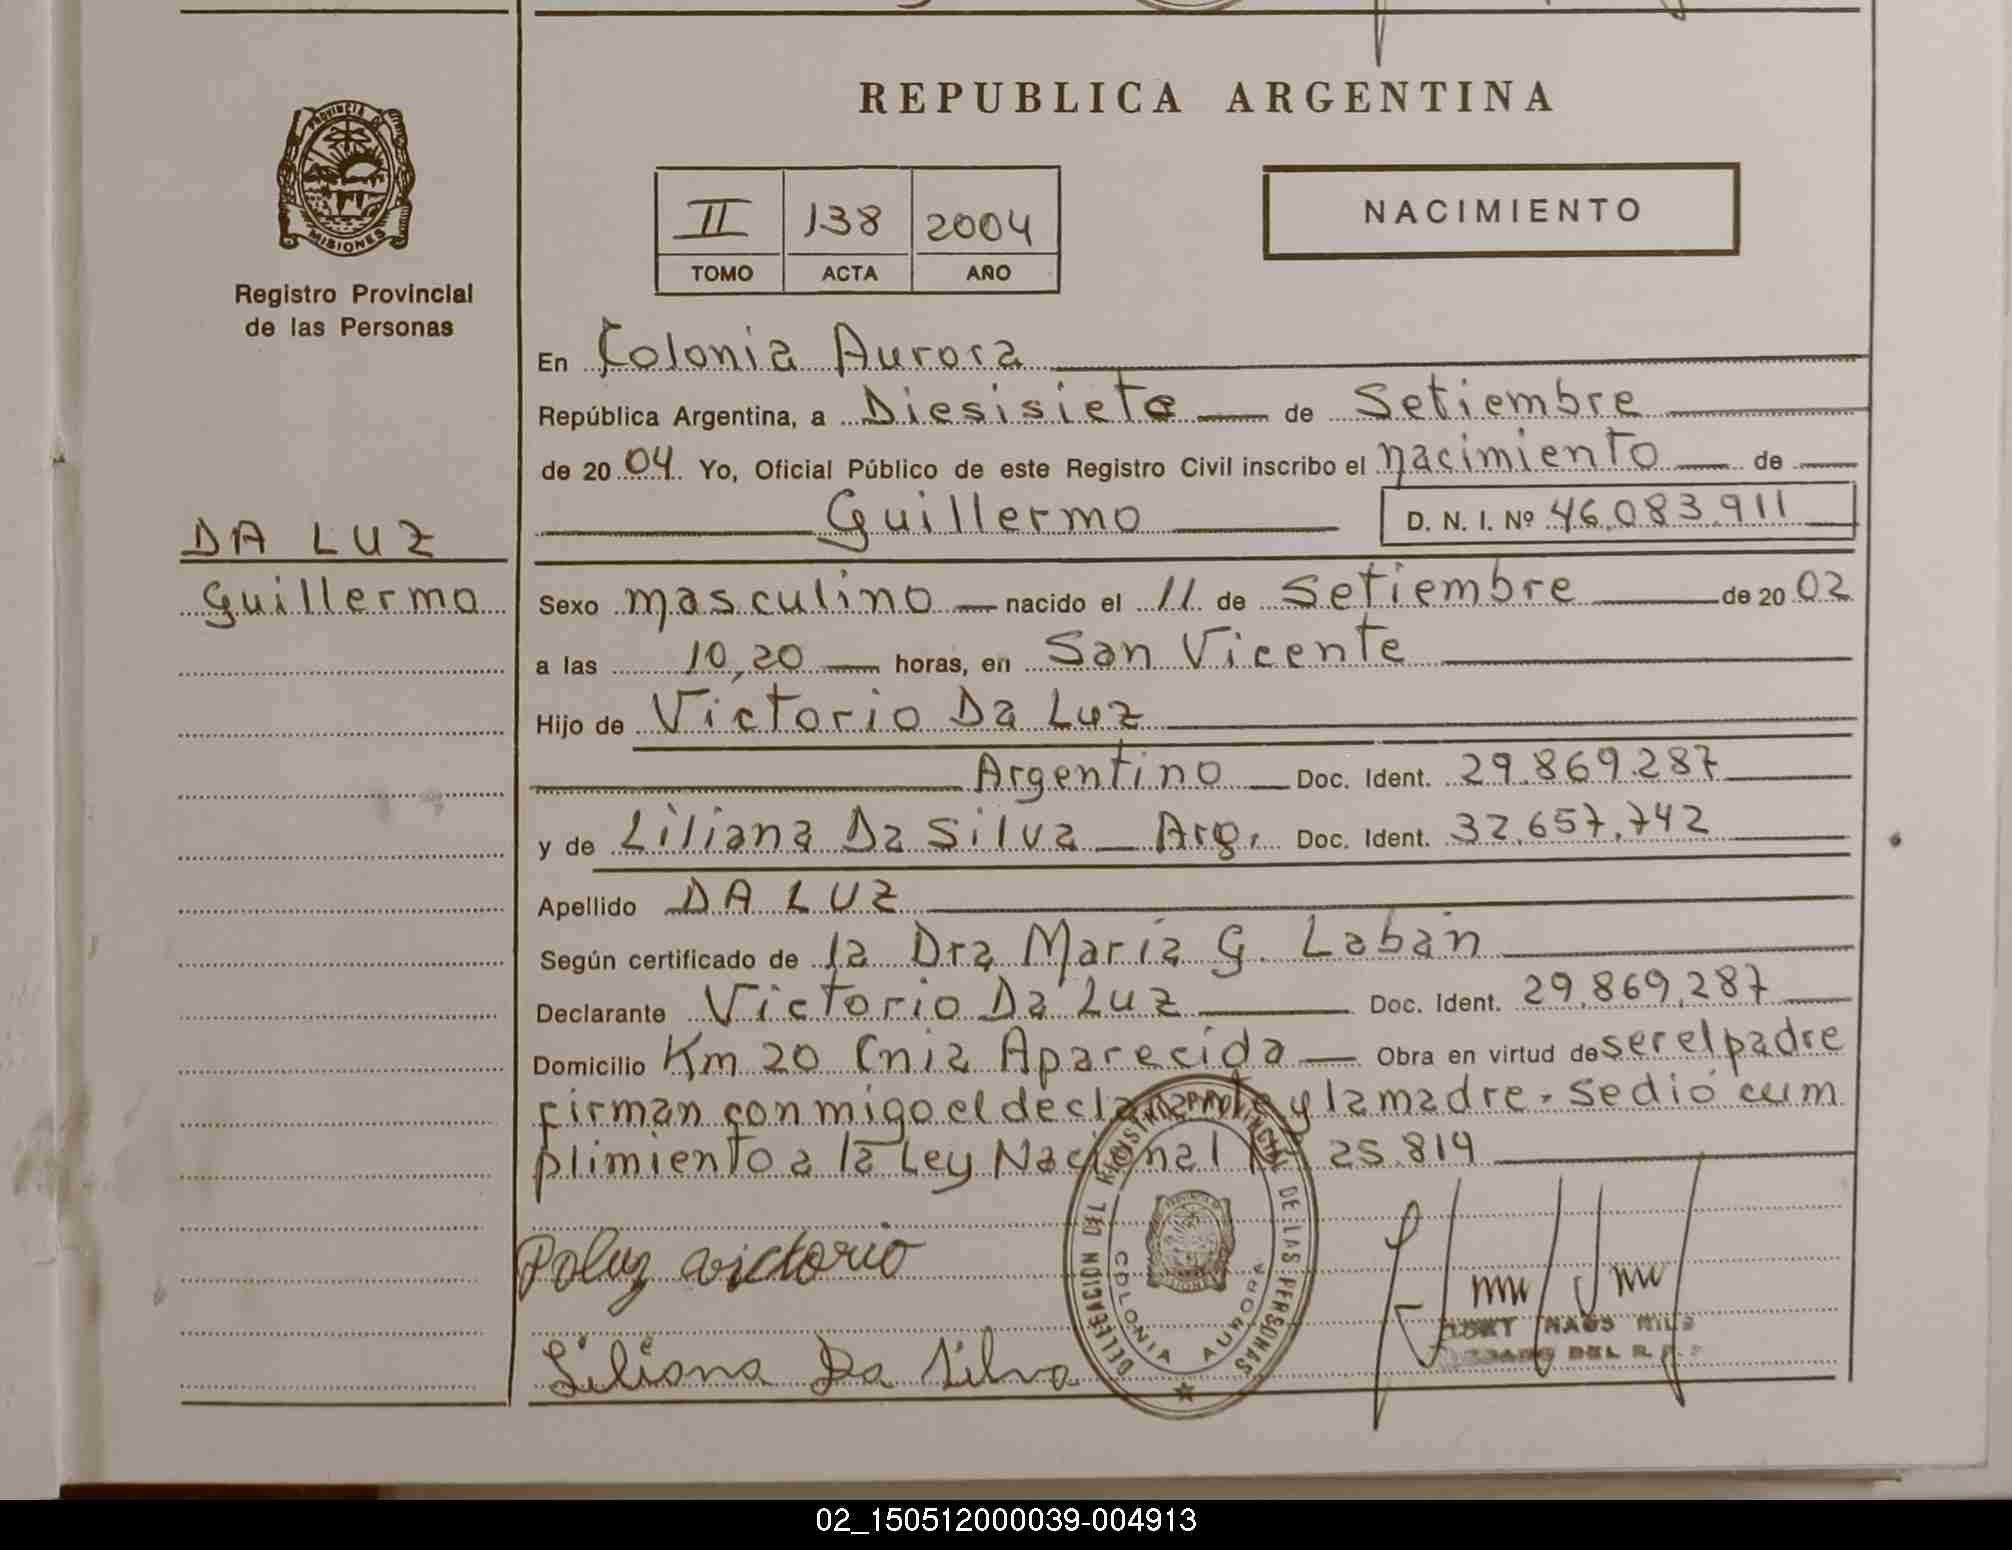 REPUBLICA ARGENTINA
PROVINCIA DE MISIONES
Registro Provincial
de las Personas
II 138 2004
TOMO ACTA AÑO
NACIMIENTO
En Colonia Aurora
República Argentina, a Diesisiete de Setiembre
de 2004 Yo, Oficial Público de este Registro Civil inscribo el nacimiento de
Guillermo D. N. I. Nº 46.083.911
DA LUZ
Guillermo
Sexo masculino nacido el 11 de Setiembre de 2002
a las 10,20 horas, en San Vicente
Hijo de Victorio Da Luz
Argentino Doc. Ident. 29.869.287
y de Liliana Da Silva Arg. Doc. Ident. 32.657.742
Apellido DA LUZ
Según certificado de la Dra María G. Labán
Declarante Victorio Da Luz Doc. Ident. 29.869.287
Domicilio Km 20 Cnia Aparecida Obra en virtud de ser el padre
firman conmigo el declarante y la madre. se dió cum
plimiento a la Ley Nacional Nº 25.819
DELEGACION DEL REGISTRO PROVINCIAL DE LAS PERSONAS
COLONIA AURORA
Daluz victorio
Liliana Da Silva
02_150512000039-004913